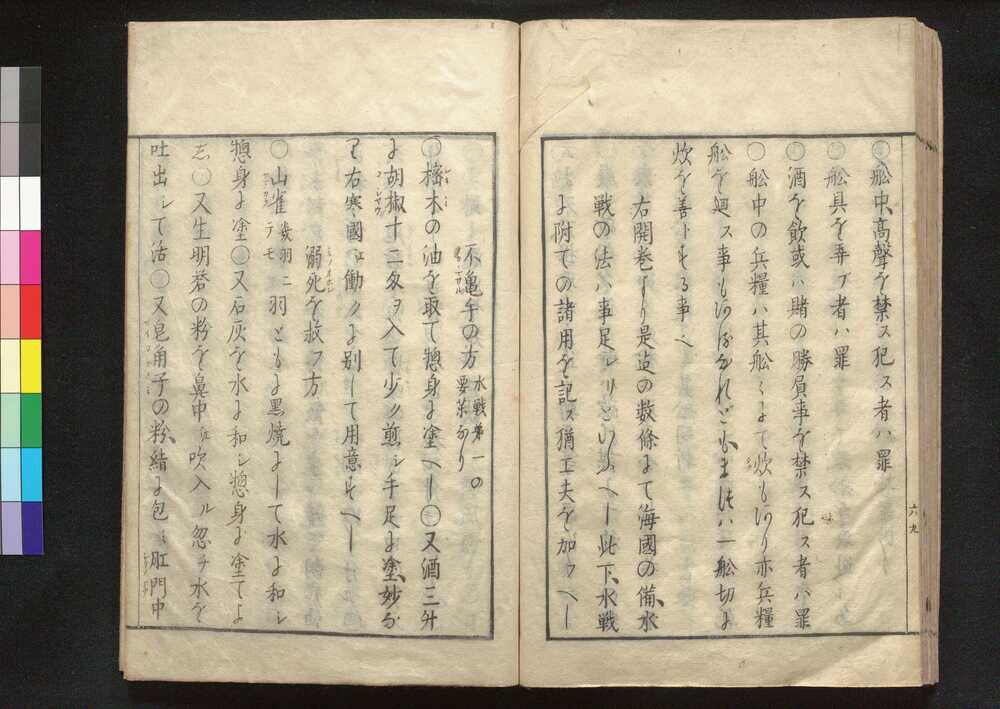 ○舩中、高聲を禁ス犯ス者ハ罪
○舩具を弄フ者ハ罪
○酒を飲或ハ賭の勝負事を禁ス犯ス者ハ罪
○舩中の兵糧ハ其舩〻にて炊もあり亦兵糧
舩を廻ス事もあるなれどもまづハ一舩切に
炊を善トする事ヘ
右開巻より是迠の数條にて海國の備、水
戦の法ハ事足レリと云ヘし此下、水戦
に附ての諸用を記ス猶工夫を加フヘし
六九
不亀手の方 水戦第一の要薬なり
○樒木の油を取て惣身に塗ヘし○又酒三升
に胡椒十二匁ヲ入て少ク煎シ手足に塗、妙な
り右寒國江働クに別して用意すヘし
溺死を救フ方
○山雀 幾羽ニテモ 二羽ともに黒焼にして水に和シ
惣身に塗○又石灰を水に和シ惣身に塗てよ
し○又生明礬の粉を鼻中江吹入ル忽チ水を
吐出して活○又皂角子の粉、綿に包ミ肛門中